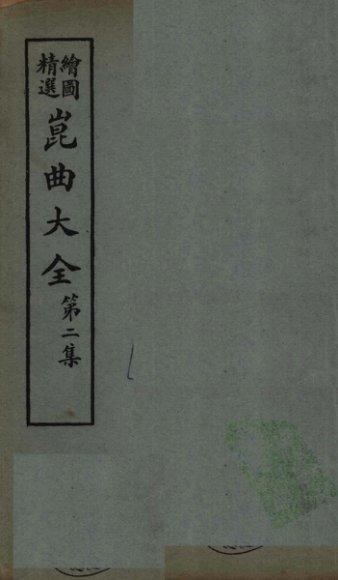 繪圖
精選
崑曲大全
第二集